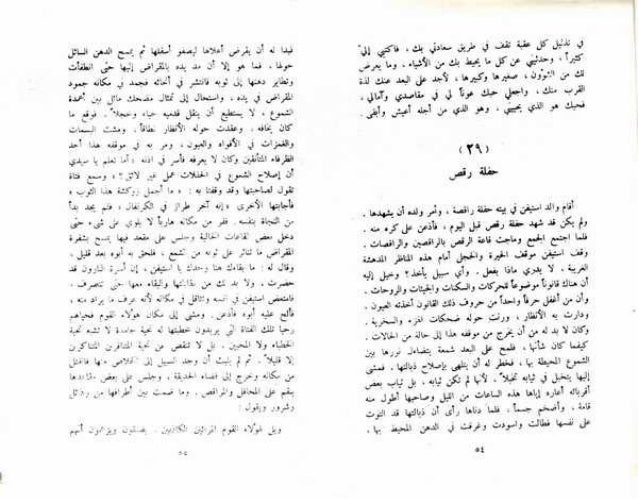 في تذليل كل عقبة تقف في طريق سعادتي بك ، فاكتبي إليّ
كثيراً ، وحدثيني عن كل ما يحيط بك من الأشياء ، وما يعرض
لك من الشؤون ، صغيرها وكبيرها ، لأجد على البعد عنك لذة
القرب منك ، واجعلي حبك عوناً لي في مقاصدي وآمالي ،
فحبك هو الذي يحييني ، وهو الذي من أجله أعيش وأبقى .
( ٢٩ )
حفلة رقص
أقام والد استيفن في بيته حفلة راقصة ، وأمر ولده أن يشهدها .
ولم يكن قد شهد حفلة رقص قبل اليوم ، فأذعن على كره منه .
فلما اجتمع الجمع وماجت قاعة الرقص بالراقصين والراقصات .
وقف استيفن موقف الحيرة والخجل أمام هذه المناظر المدهشة
الغريبة . لا يدري ماذا يفعل . وأي سبيل يأخذ؟ وخيل إليه
أن هناك قانوناً موضوعاً للحركات والسكنات والجيئات والروحات .
وأن من أغفل حرفاً واحداً من حروف ذلك القانون أخذته العيون .
ودارت به الأنظار ، ورنت حوله ضحكات الهزء والسخرية .
وكان لا بد له من أن يخرج من موقفه هذا إلى حالة من الحالات .
كيفما كان شأنها ، فلمح على البعد شمعة يتضاءل نورها بين
الشموع المحيطة بها ، فخطر له أن يتلهى بإصلاح ذبالتها . فمشى
إليها يتخيل في ثيابه تخيلاً . لأنها لم تكن ثيابه . بل ثياب بعض
أقربائه أعاره إياها هذه الساعات من الليل وصاحبها أطول منه
قامة . وأضخم جسماً . فلما دناها رأى أن ذبالتها قد التوت
على نفسها فطالت واسودت وغرقت في الدهن المحيط بها .
٥٤
فبدا له أن يقرض أعلاها ليصفو أسفلها ثم يمسح الدهن السائل
حولها . فما هو إلا أن مد يده بالمقراض إليها حتى انطفأت
وتطاير دهنها إلى ثوبه فانتشر في أنحائه فجمد في مكانه جمود
المقراض في يده ، واستحال إلى تمثال مضحك ماثل بين أعمدة
الشموع ، لا يستطيع أن ينقل قدميه حياء وخجلاً . فوقع ما
كان يخافه . وعقدت حوله الأنظار نطاقاً . ومشت البسمات
والغمزات في الأفواه والعيون ، ومر به في موقفه هذا أحد
الظرفاء المتأنقين وكان لا يعرفه فأسر في أذنه : أما تعلم يا سيدي
أن إصلاح الشموع في الحفلات عمل غير لائق؟ » وسمع فتاة
تقول لصاحبتها وقد وقفتا به : « ما أجمل زركشة هذا الثوب »
فأجابتها الأخرى « إنه آخر طراز في الكرنفال » فلم يجد بداً
من النجاة بنفسه . ففر من مكانه هارباً لا يلوي على شيء حتى
دخل بعض القاعات الخالية وجلس على مقعد فيها يمسح بشفرة
المقراض ما تناثر على ثوبه من الشمع ، فلحق به أبوه بعد قليل .
وقال له : ما بقاءك هنا وحدك يا استيفن ، إن أسرة البارون قد
حضرت . ولا بد لك من مقابلتها والبقاء معها حتى تنصرف .
فامتعض استيفن في نفسه وتثاقل في مكانه لأنه عرف ما يراد منه ،
فألح عليه أبوه فأذعن . ومشى إلى مكان هؤلاء القوم فحياهم
وحيا تلك الفتاة التي يريدون خطبتها له تحية جامدة لا تشبه تحية
الخطباء ولا المحبين . بل لا تنقص عن تحية المتنافرين المتناكرين
إلا قليلاً . ثم لم يلبث أن وجد السبيل إلى الخلاص منها فانفتل
من مكانه وخرج إلى فضاء الحديقة . وجلس على بعض مقاعدها
ينقم على المحافل والمراقص . وما ضمت بين أطرافها من رذائل
وشرور ويقول :
ويل لهؤلاء القوم المرائين الكاذبين .